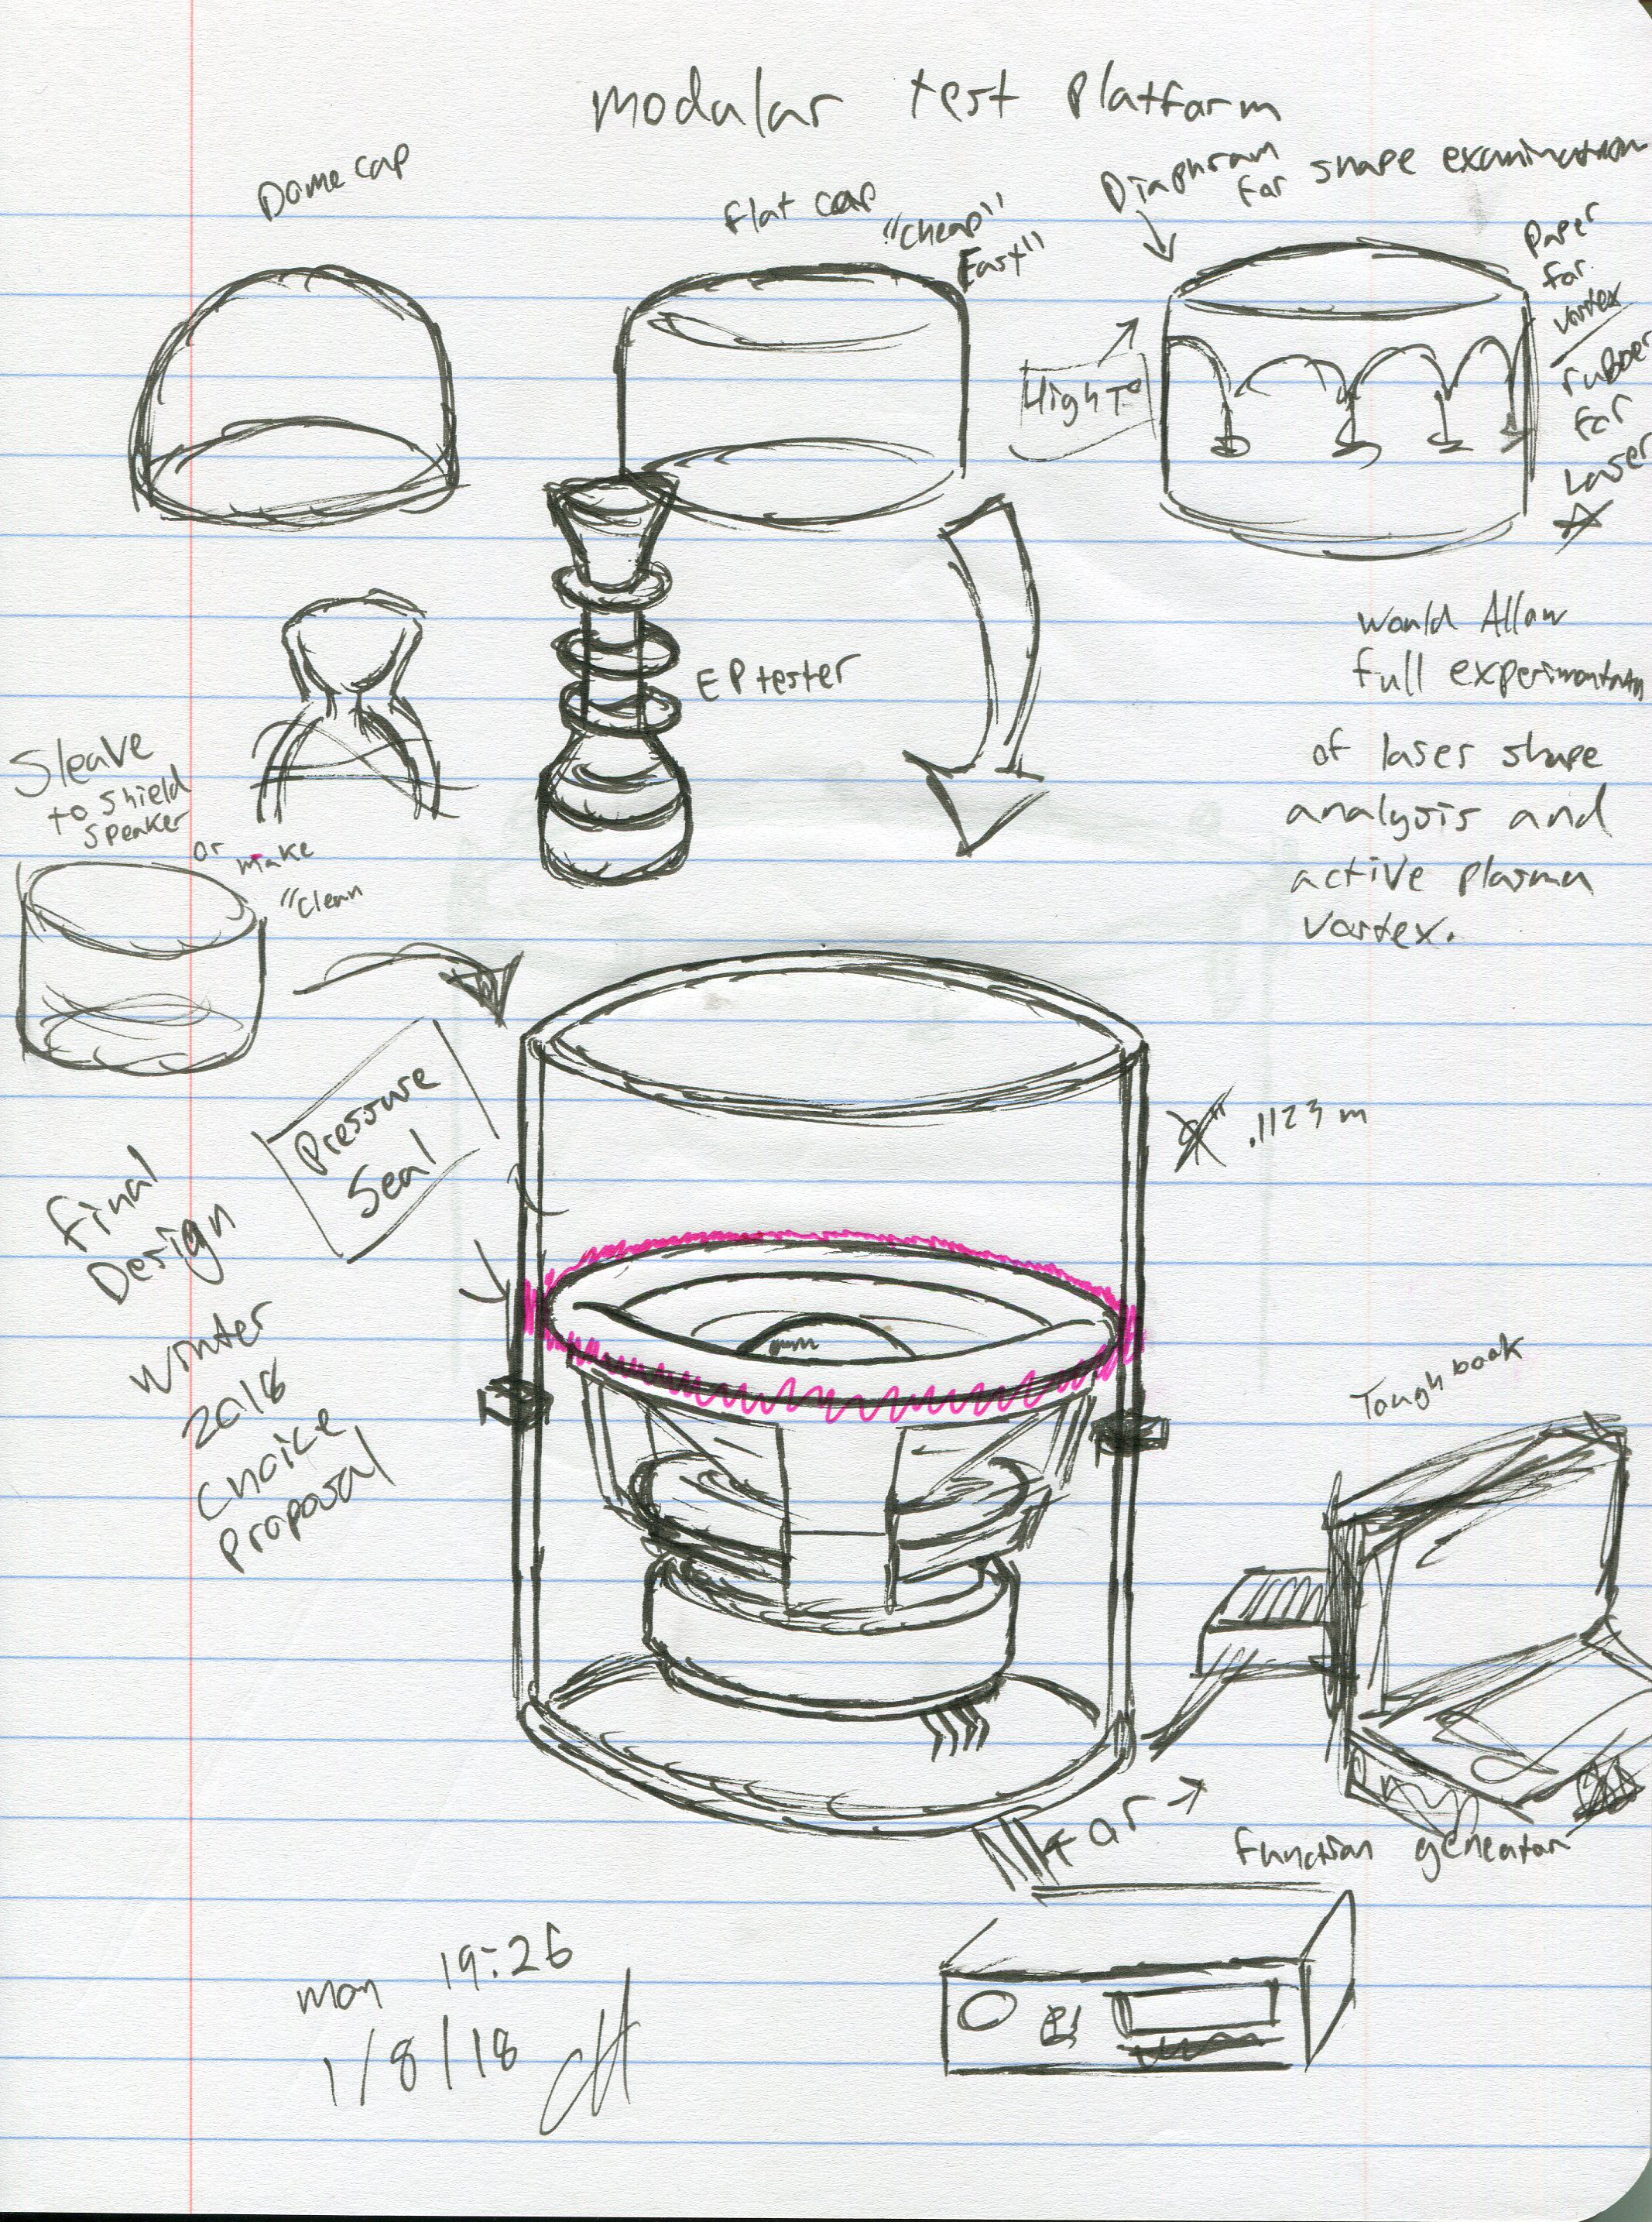 modular test platform
Dome cap
flat cap
"cheap"
Fast"
Diaphram
for shape examination
Paper
for
vortex
rubber
for
Laser
High T°
EP tester
would Allow
full experimentation
of laser shape
analysis and
active plasma
vortex.
Sleave
to shield
speaker
or make
"Clean
Pressure
Seal
.1123 m
Final
Design
Winter
2018
Choice
Proposal
Toughbook
or
function geneator
mon 19:26
1/8/18